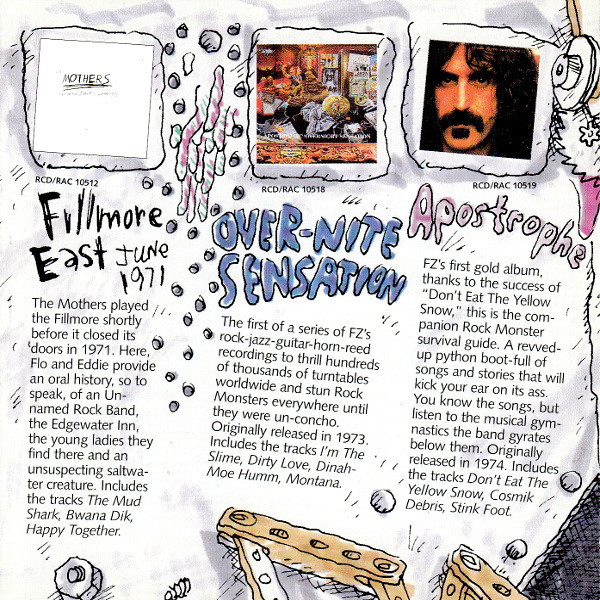 MOTHERS
RCD/RAC 10512
Fillmore
East June
1971
The Mothers played
the Fillmore shortly
before it closed its
doors in 1971. Here,
Flo and Eddie provide
an oral history, so to
speak, of an Un-
named Rock Band,
the Edgewater Inn,
the young ladies they
find there and an
unsuspecting saltwa-
ter creature. Includes
the tracks The Mud
Shark, Bwana Dik,
Happy Together.
RCD/RAC 10518
OVER-NITE
SENSATION
The first of a series of FZ's
rock-jazz-guitar-horn-reed
recordings to thrill hundreds
of thousands of turntables
worldwide and stun Rock
Monsters everywhere until
they were un-concho.
Originally released in 1973.
Includes the tracks I'm The
Slime, Dirty Love, Dinah-
Moe Humm, Montana.
RCD/RAC 10519
Apostrophe
FZ's first gold album,
thanks to the success of
"Don't Eat The Yellow
Snow," this is the com-
panion Rock Monster
survival guide. A revved-
up python boot-full of
songs and stories that will
kick your ear on its ass.
You know the songs, but
listen to the musical gym-
nastics the band gyrates
below them. Originally
released in 1974. Includes
the tracks Don't Eat The
Yellow Snow, Cosmik
Debris, Stink Foot.